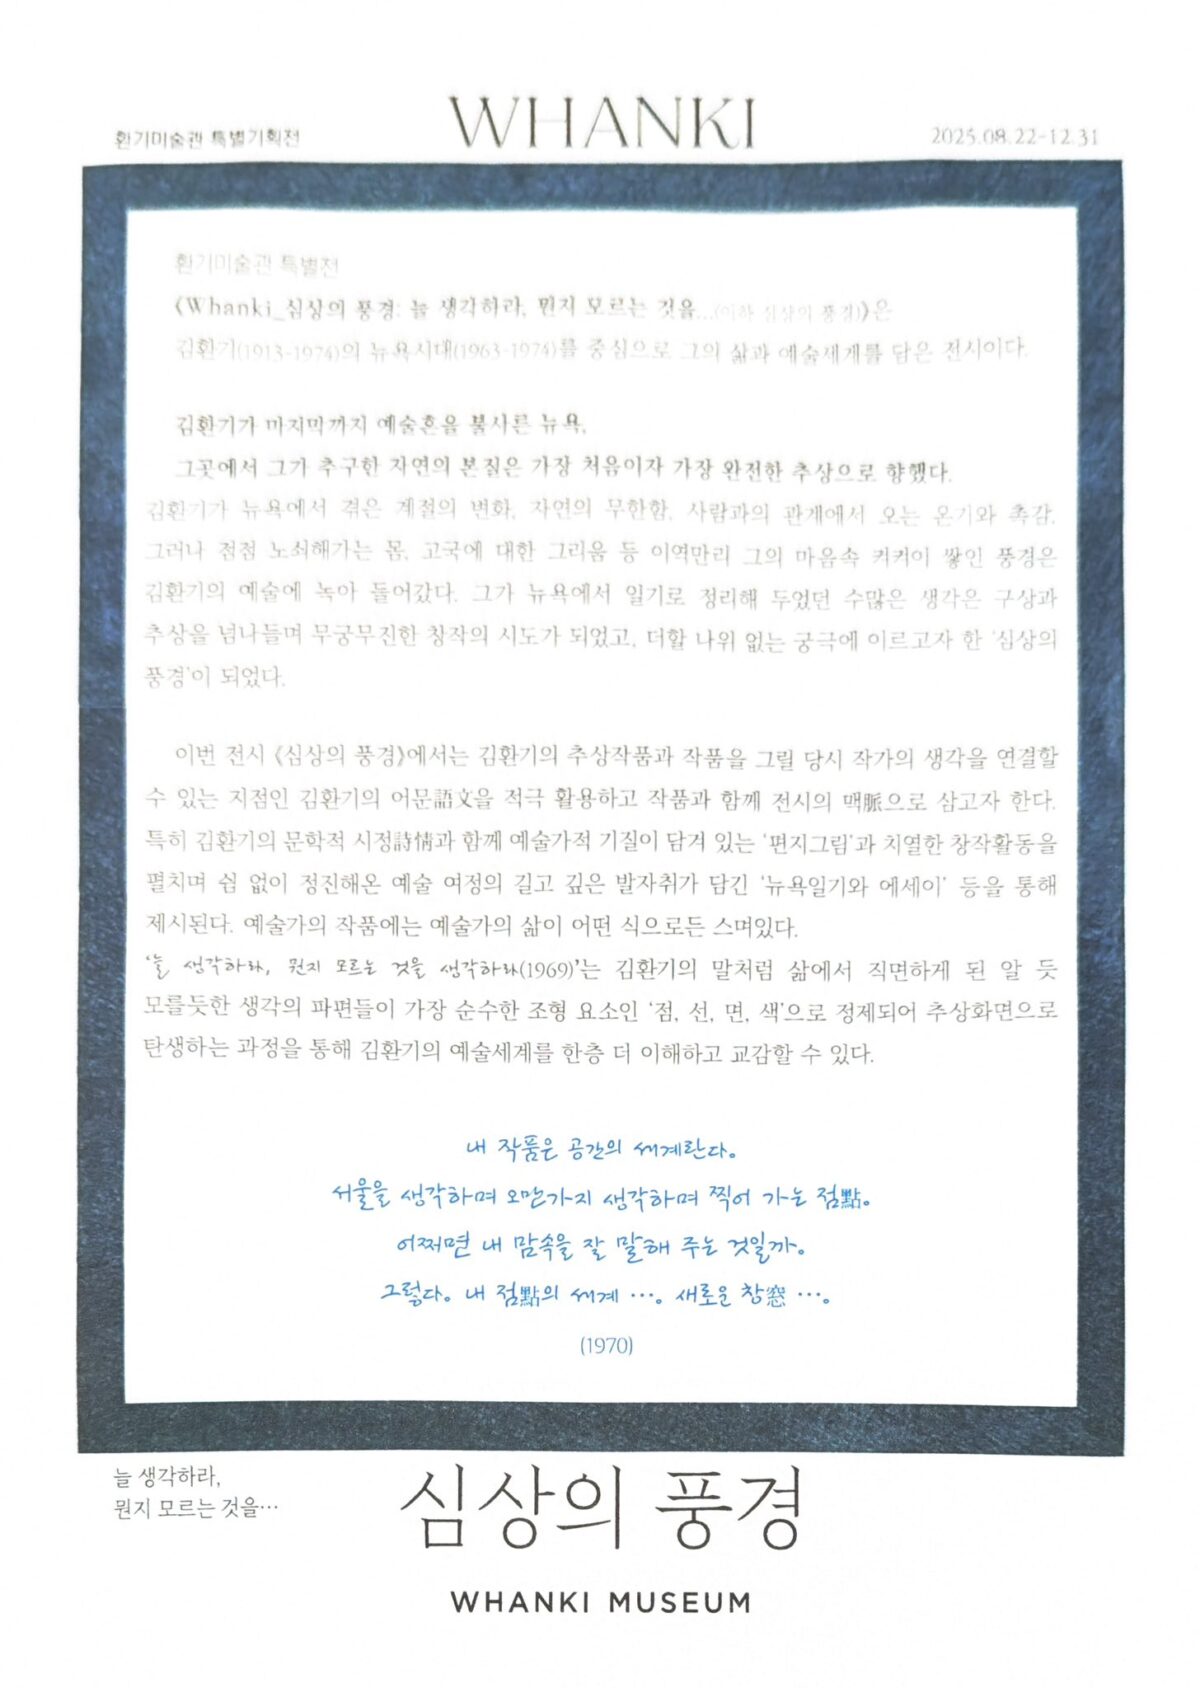 WHANKI
환기미술관 특별기획전
2025.08.22-12.31
환기미술관 특별전
《Whanki_심상의 풍경: 늘 생각하라, 뭔지 모르는 것을...(이하 심상의 풍경)》은
김환기(1913-1974)의 뉴욕시대(1963-1974)를 중심으로 그의 삶과 예술세계를 담은 전시이다.
김환기가 마지막까지 예술혼을 불사른 뉴욕,
그곳에서 그가 추구한 자연의 본질은 가장 처음이자 가장 완전한 추상으로 향했다.
김환기가 뉴욕에서 겪은 계절의 변화, 자연의 무한함, 사람과의 관계에서 오는 온기와 촉감,
그러나 점점 노쇠해가는 몸, 고국에 대한 그리움 등 이역만리 그의 마음속 켜켜이 쌓인 풍경은
김환기의 예술에 녹아 들어갔다. 그가 뉴욕에서 일기로 정리해 두었던 수많은 생각은 구상과
추상을 넘나들며 무궁무진한 창작의 시도가 되었고, 더할 나위 없는 궁극에 이르고자 한 '심상의
풍경'이 되었다.
이번 전시 《심상의 풍경》에서는 김환기의 추상작품과 작품을 그릴 당시 작가의 생각을 연결할
수 있는 지점인 김환기의 어문語文을 적극 활용하고 작품과 함께 전시의 맥脈으로 삼고자 한다.
특히 김환기의 문학적 시정詩情과 함께 예술가적 기질이 담겨 있는 '편지그림'과 치열한 창작활동을
펼치며 쉼 없이 정진해온 예술 여정의 길고 깊은 발자취가 담긴 '뉴욕일기와 에세이' 등을 통해
제시된다. 예술가의 작품에는 예술가의 삶이 어떤 식으로든 스며있다.
'늘 생각하라, 뭔지 모르는 것을 생각하라(1969)'는 김환기의 말처럼 삶에서 직면하게 된 알 듯
모를듯한 생각의 파편들이 가장 순수한 조형 요소인 '점, 선, 면, 색'으로 정제되어 추상화면으로
탄생하는 과정을 통해 김환기의 예술세계를 한층 더 이해하고 교감할 수 있다.
내 작품은 공간의 세계란다。
서울을 생각하며 오만가지 생각하며 찍어 가는 점點。
어쩌면 내 맘속을 잘 말해 주는 것일까。
그렇다。 내 점點의 세계 …。 새로운 창窓 …。
(1970)
늘 생각하라,
뭔지 모르는 것을…
심상의 풍경
WHANKI MUSEUM